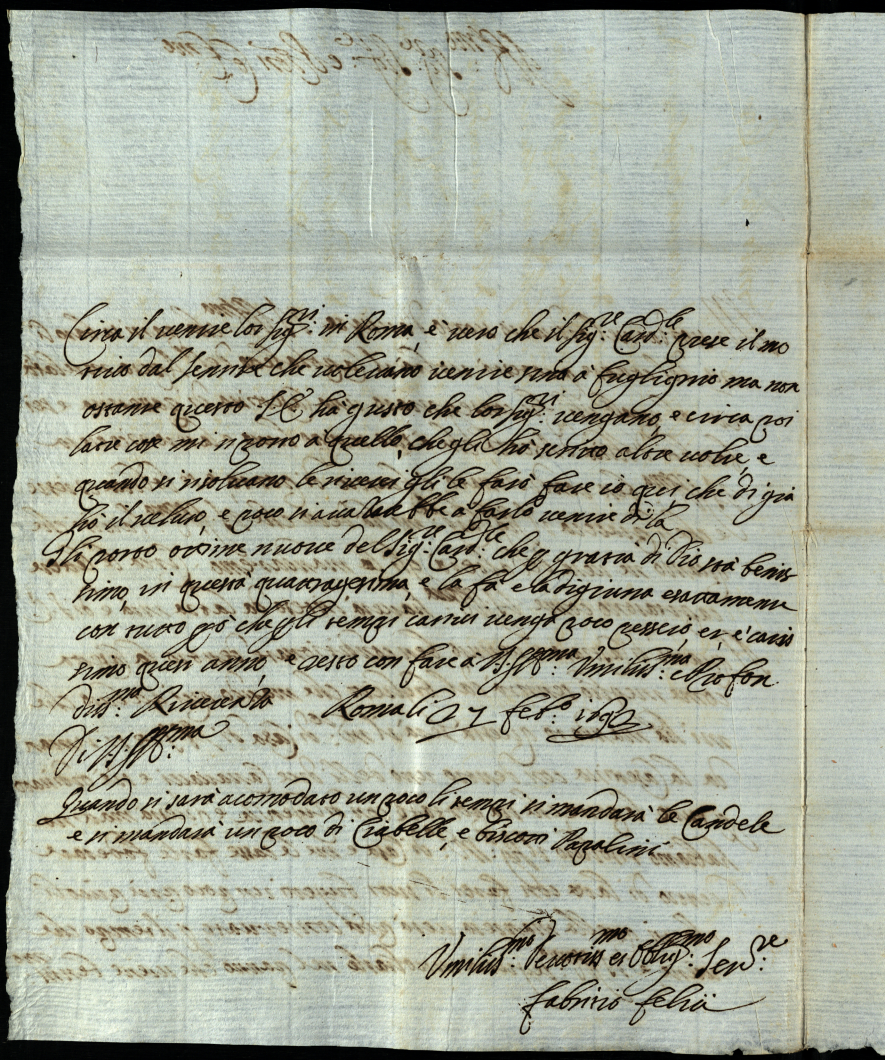 Circa il venire lor Sig.ri in Roma, è vero che il Sig.re Card.le prese il mo
tivo dal sentire che volevano venire sino à fuglignio ma non
ostante questo S.E. ha gusto che lor Sig.ri vengano, e circa poi
la cose mi riporto a quello, che gli hò scritto altre volte, e
quando si risolvano le riceverà gli le farò fare io qui, che di già
hò il veluto, e poco si avanzarebbe a farlo venire di là
Gli porto ottime nuove del Sig.re Card.le che p gratia di Dio stà benis
simo, in questa quatragesima, e la fà e la digiuna esattamente
con tutto ciò che gli tempi cattivi venga poco pesscio, et è caris
simo quest anno, e resto con fare à V.S. Ill.ma Umiliss.ma e Profon
diss.ma Riverenza Roma li 27 feb.o 169
Di V.S. Ill.ma
Quando si sarà acomodato un poco li tempi si mandarà le Candele
e si mandarà un poco di Ciabelle, e biscotti Papalini
Umiliss.mo Devotiss.mo et Oblig.mo Ser.re
Fabritio Felici